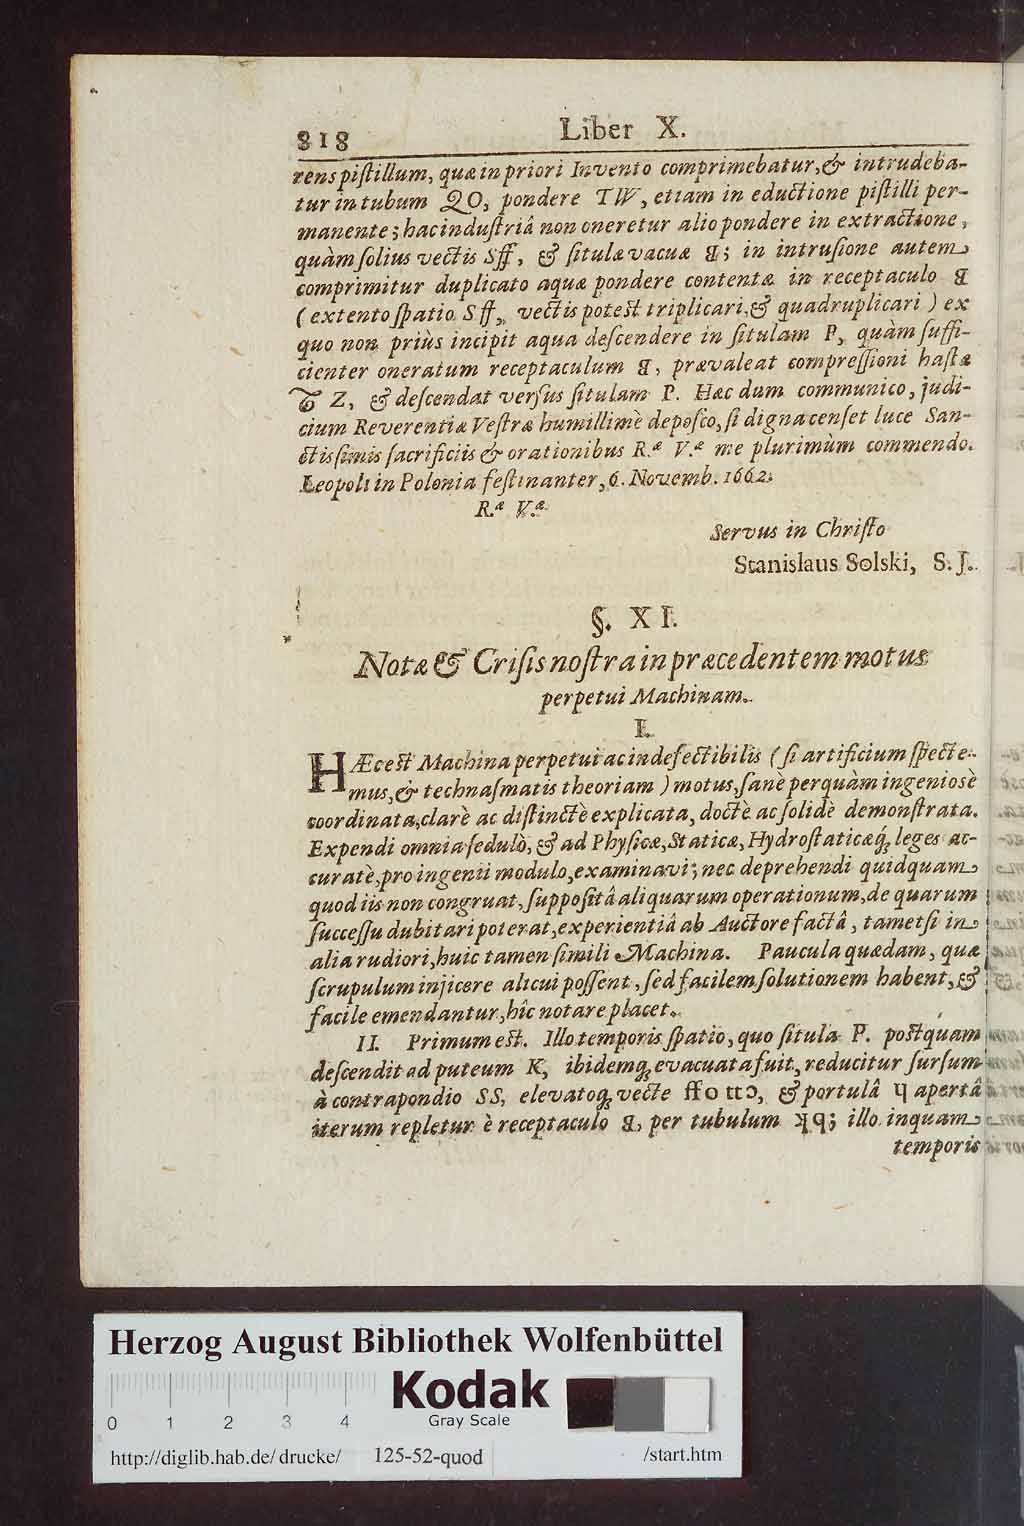 818 Liber X.
rens piſtillum, quæ in priori Invento comprimebatur, & intrudeba-
tur in tubum QO, pondere TW, etiam in eductione piſtilli per-
manente; hac induſtriâ non oneretur alio pondere in extractione,
quàm ſolius vectis Sff, & ſitulæ vacuæ ᗺ; in intruſione autem
comprimitur duplicato aquæ pondere contentæ in receptaculo ᗺ
(extento ſpatio Sff, vectis potest triplicari, & quadruplicari) ex
quo non priùs incipit aqua deſcendere in ſitulam P, quàm ſuffi-
cienter oneratum receptaculum ᗺ, prævaleat compreſſioni haſtæ
Z, & deſcendat verſus ſitulam P. Hæc dum communico, judi-
cium Reverentiæ Veſtræ humillimè depoſco, ſi digna cenſet luce San-
ctiſſimis ſacrificiis & orationibus R.æ V.æ me plurimùm commendo.
Leopoli in Polonia feſtinanter, 6. Novemb. 1662.
R.æ V.æ
Servus in Chriſto
Stanislaus Solski, S. J.
§. XI.
Notæ & Criſis noſtra in præcedentem motus
perpetui Machinam.
I.
HÆc est Machina perpetui ac indefectibilis (ſi artificium ſpecte-
mus, & technaſmatis theoriam) motus, ſanè perquàm ingenioſè
coordinata, clarè ac diſtinctè explicata, doctè ac ſolidè demonſtrata.
Expendi omnia ſedulò, & ad Phyſicæ, Staticæ, Hydroſtaticæq́; leges ac-
curatè, pro ingenii modulo, examinavi; nec deprehendi quidquam
quod iis non congruat, ſuppoſitâ aliquarum operationum, de quarum
ſucceſſu dubitari poterat, experientiâ ab Auctore factâ, tametſi in
alia rudiori, huic tamen ſimili Machina. Paucula quædam, quæ
ſcrupulum injicere alicui poſſent, ſed facilem ſolutionem habent, &
facile emendantur, hîc notare placet.
II. Primum est. Illo temporis ſpatio, quo ſitula P. postquam
deſcendit ad puteum K, ibidemq; evacuata fuit, reducitur ſurſum
à contrapondio SS, elevatoq; vecte ffottɔ, & portulâ Ч apertâ
iterum repletur è receptaculo ᗺ, per tubulum ʞꟼ; illo inquam
temporis
Herzog August Bibliothek Wolfenbüttel
Kodak
Gray Scale
0 1 2 3 4
http://diglib.hab.de/drucke/ 125-52-quod /start.htm